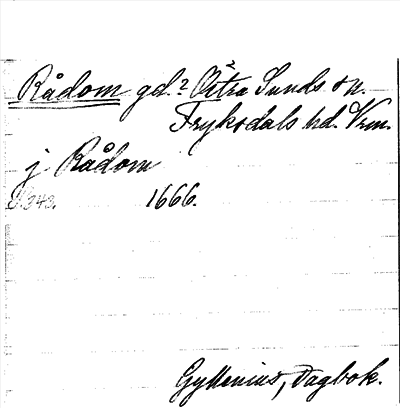 Rådom gd.? Östra Sunds sn.
Fryksdals hd. Vrm.
j Rådom
S.343. 1666.
Gyllenius, Dagbok.